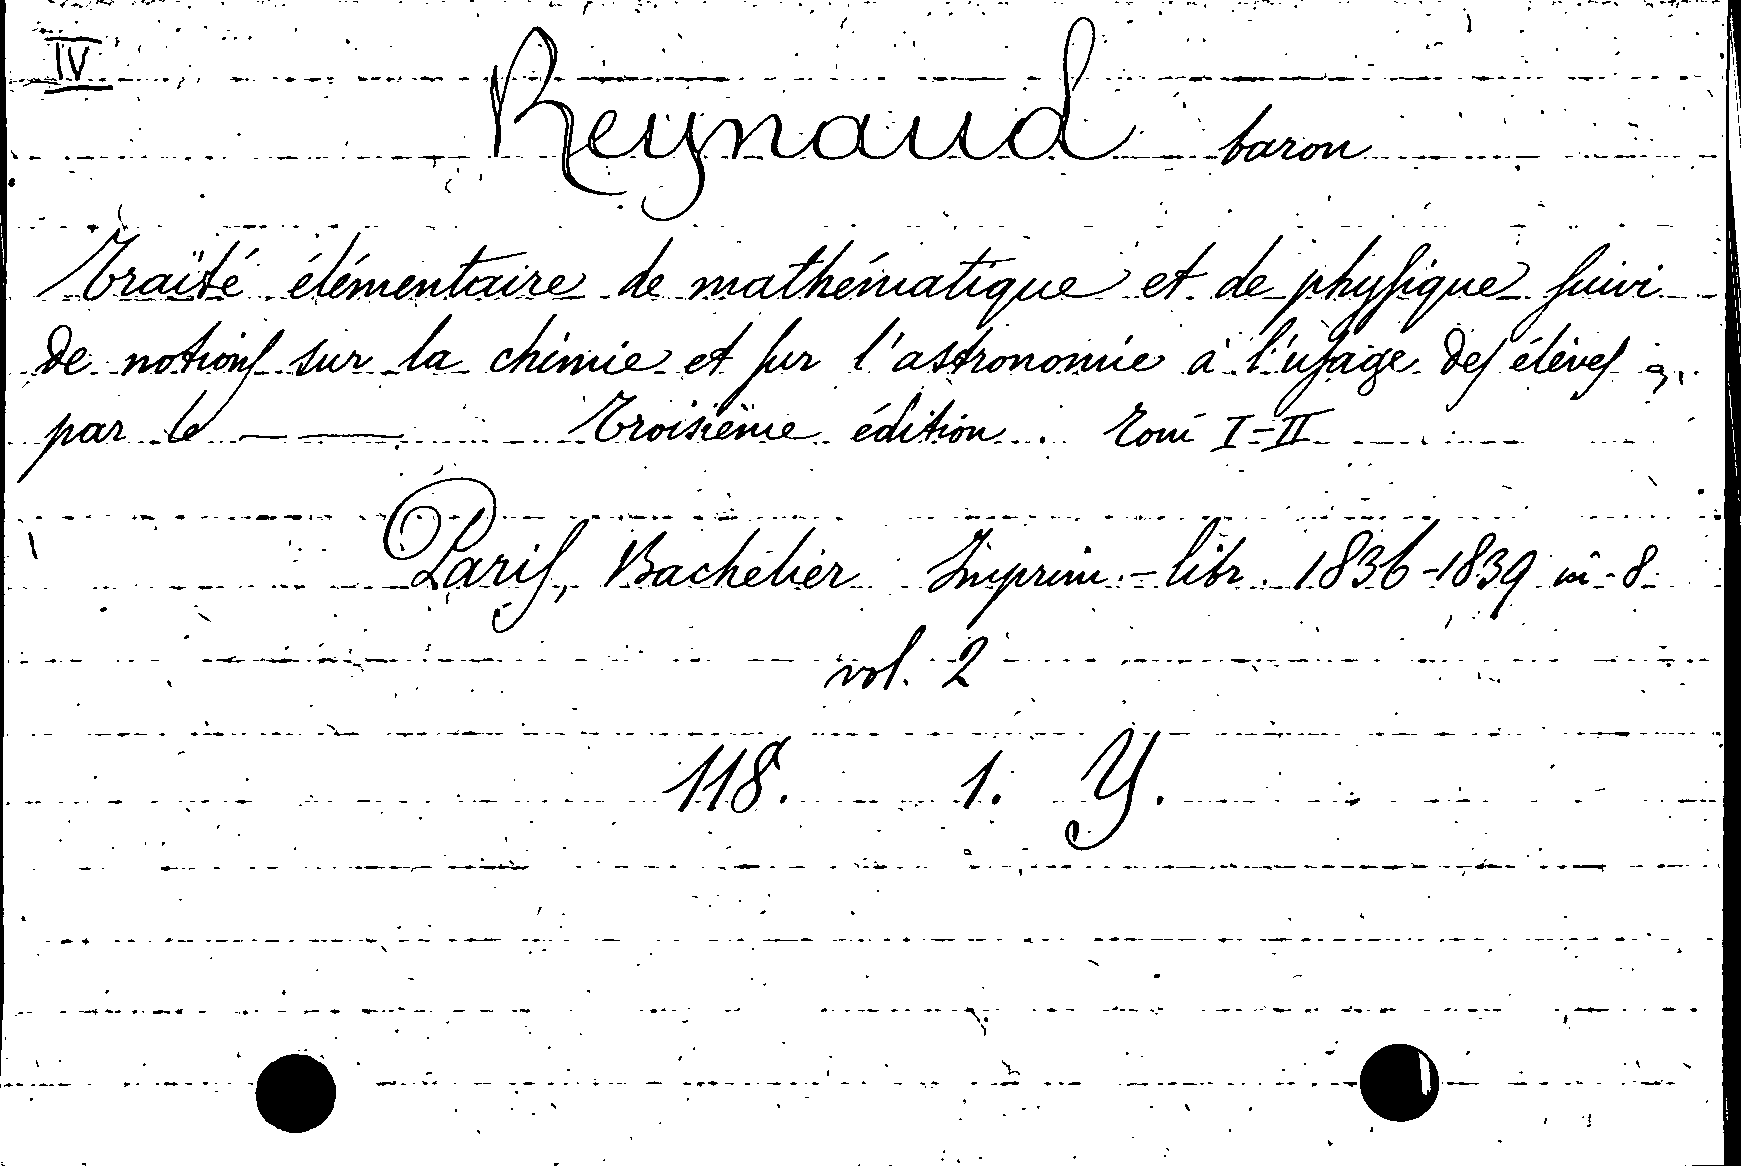 IV
Reynaud baron
Traïté élémentaire de mathématique et de physique suivi
de notions sur la chimie et sur l'astronomie à l'usage des élèves
par le —— Troisième édition. Tom I-II
Paris, Bachelier Imprim.-libr. 1836-1839 in-8
vol. 2
118. 1. Y.